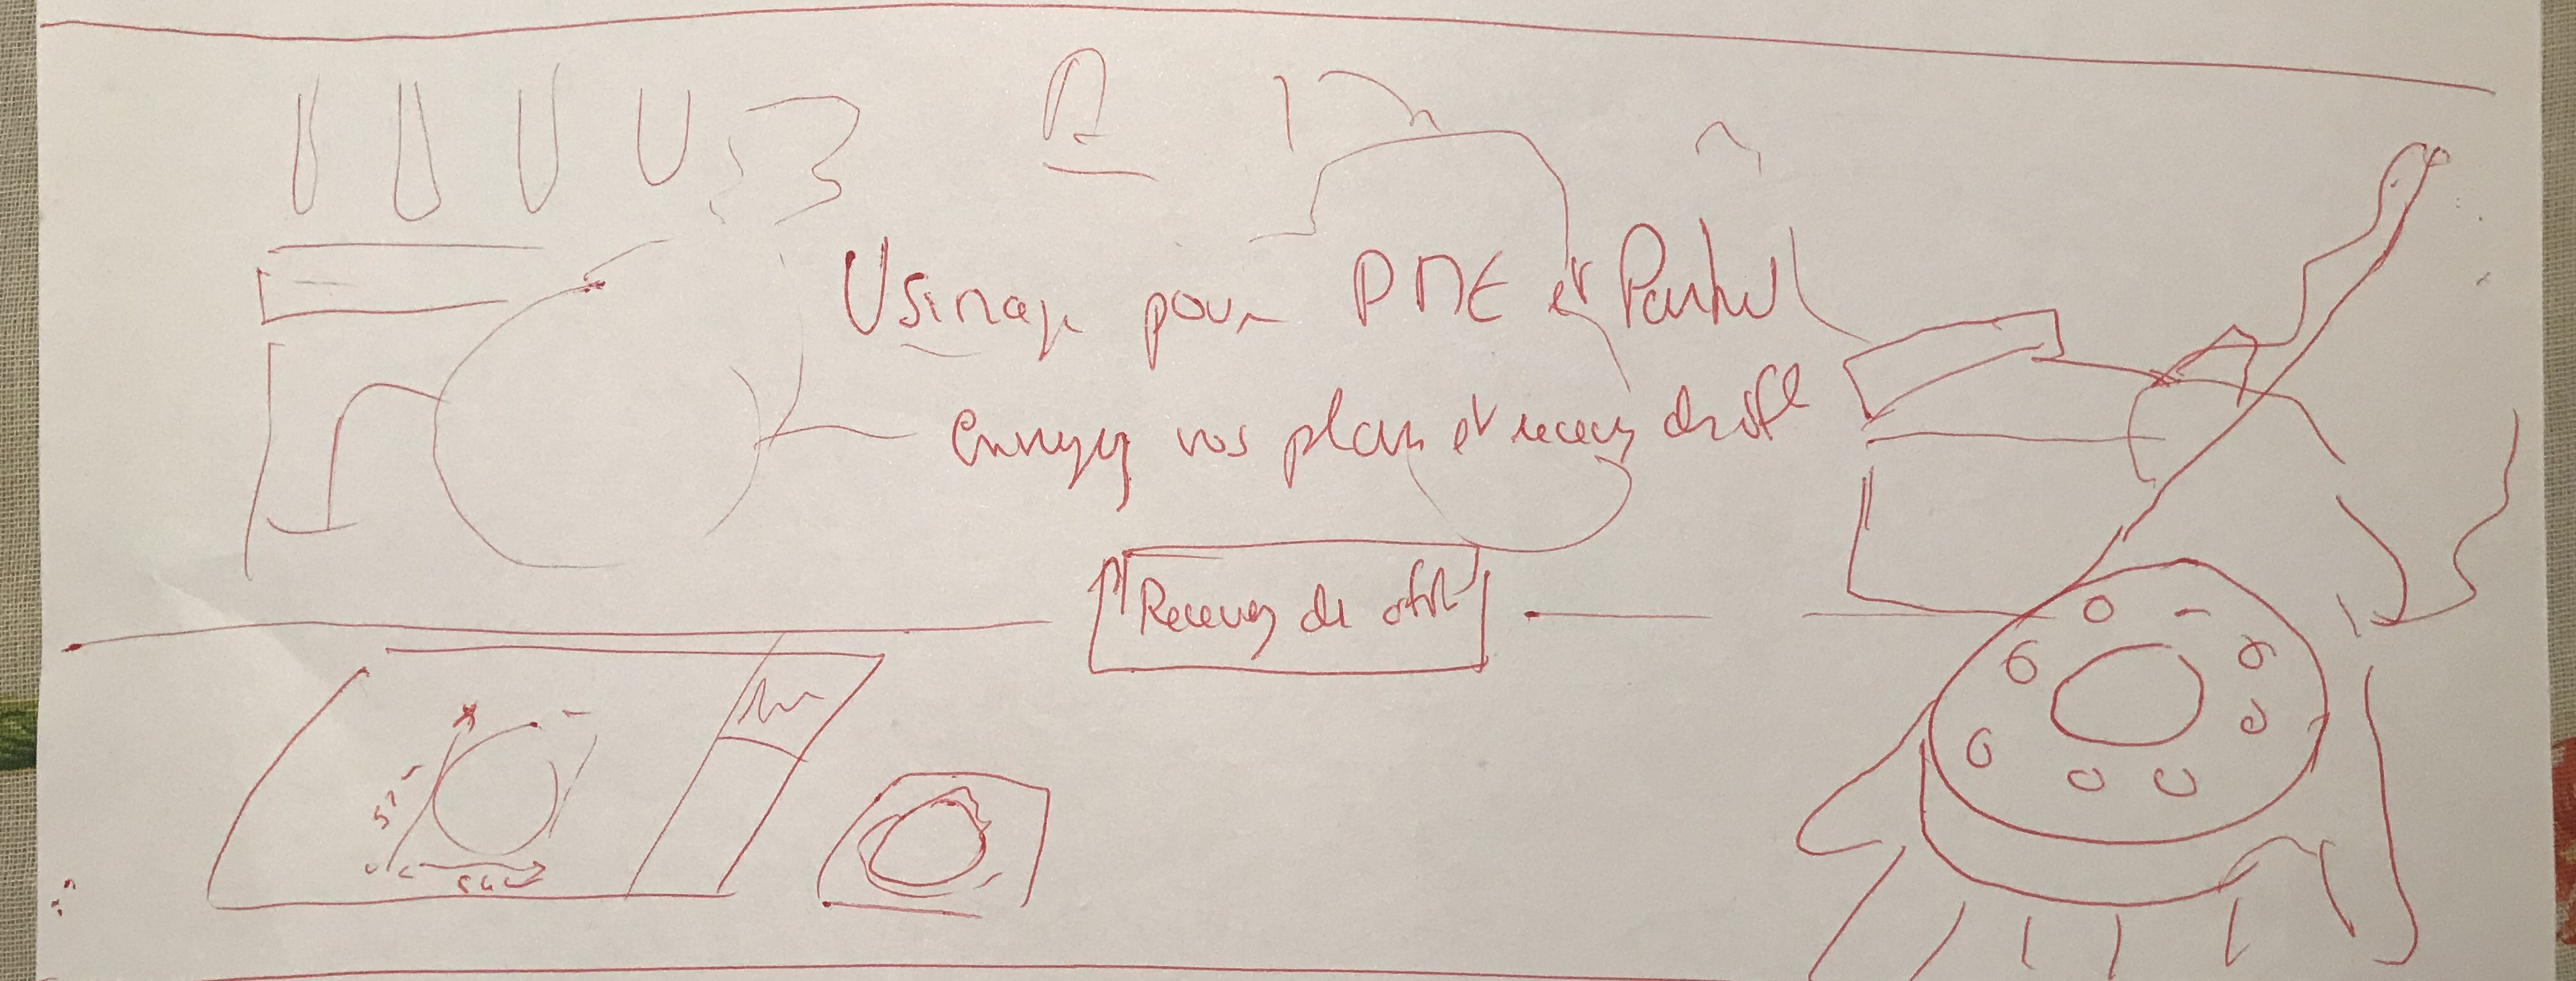 Usinage pour PME et Particul
envoyez vos plans et recevez des offre
Recevez des offre